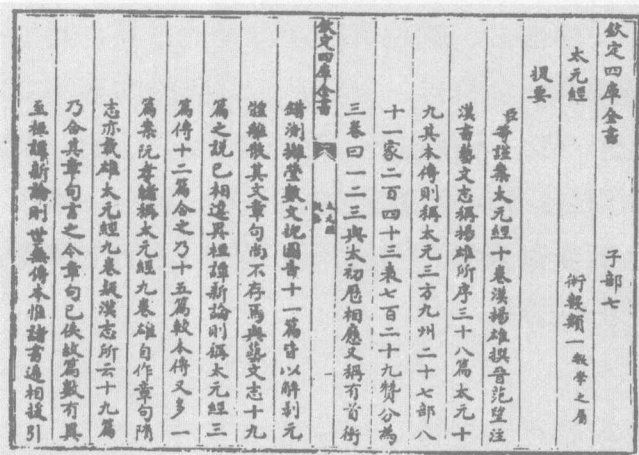 欽定四庫全書　子部七
太元經　術數類一數學之屬
提要
臣等謹案太元經十卷漢揚雄撰晉范望注
漢書藝文志稱揚雄所序三十八篇太元十
九其本傳則稱太元三方九州二十七部八
十一家二百四十三表七百二十九贊分為
三卷曰一二三與太初厯相應又稱有首衝
欽定四庫全書
太元經
提要
一
錯測攡瑩數文掜圖告十一篇皆以解剥元
體離散其文章句尚不存焉與藝文志十九
篇之說已相違異桓譚新論則稱太元經三
篇傳十二篇合之乃十五篇較本傳又多一
篇案阮孝緒稱太元經九卷雄自作章句隋
志亦載雄太元經九卷疑漢志所云十九篇
乃合其章句言之今章句已佚故篇數有異
至桓譚新論則世無傳本惟諸書遞相援引